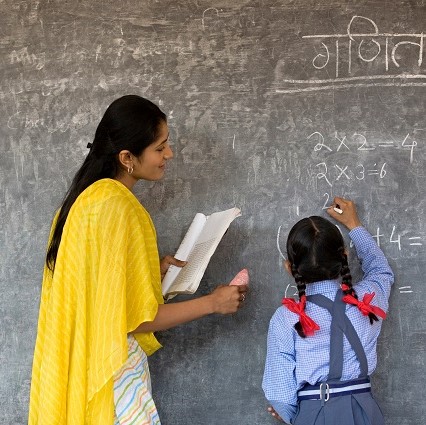 गणित
2 × 2 = 4
2 × 3 = 6
2
+ 4 =
=